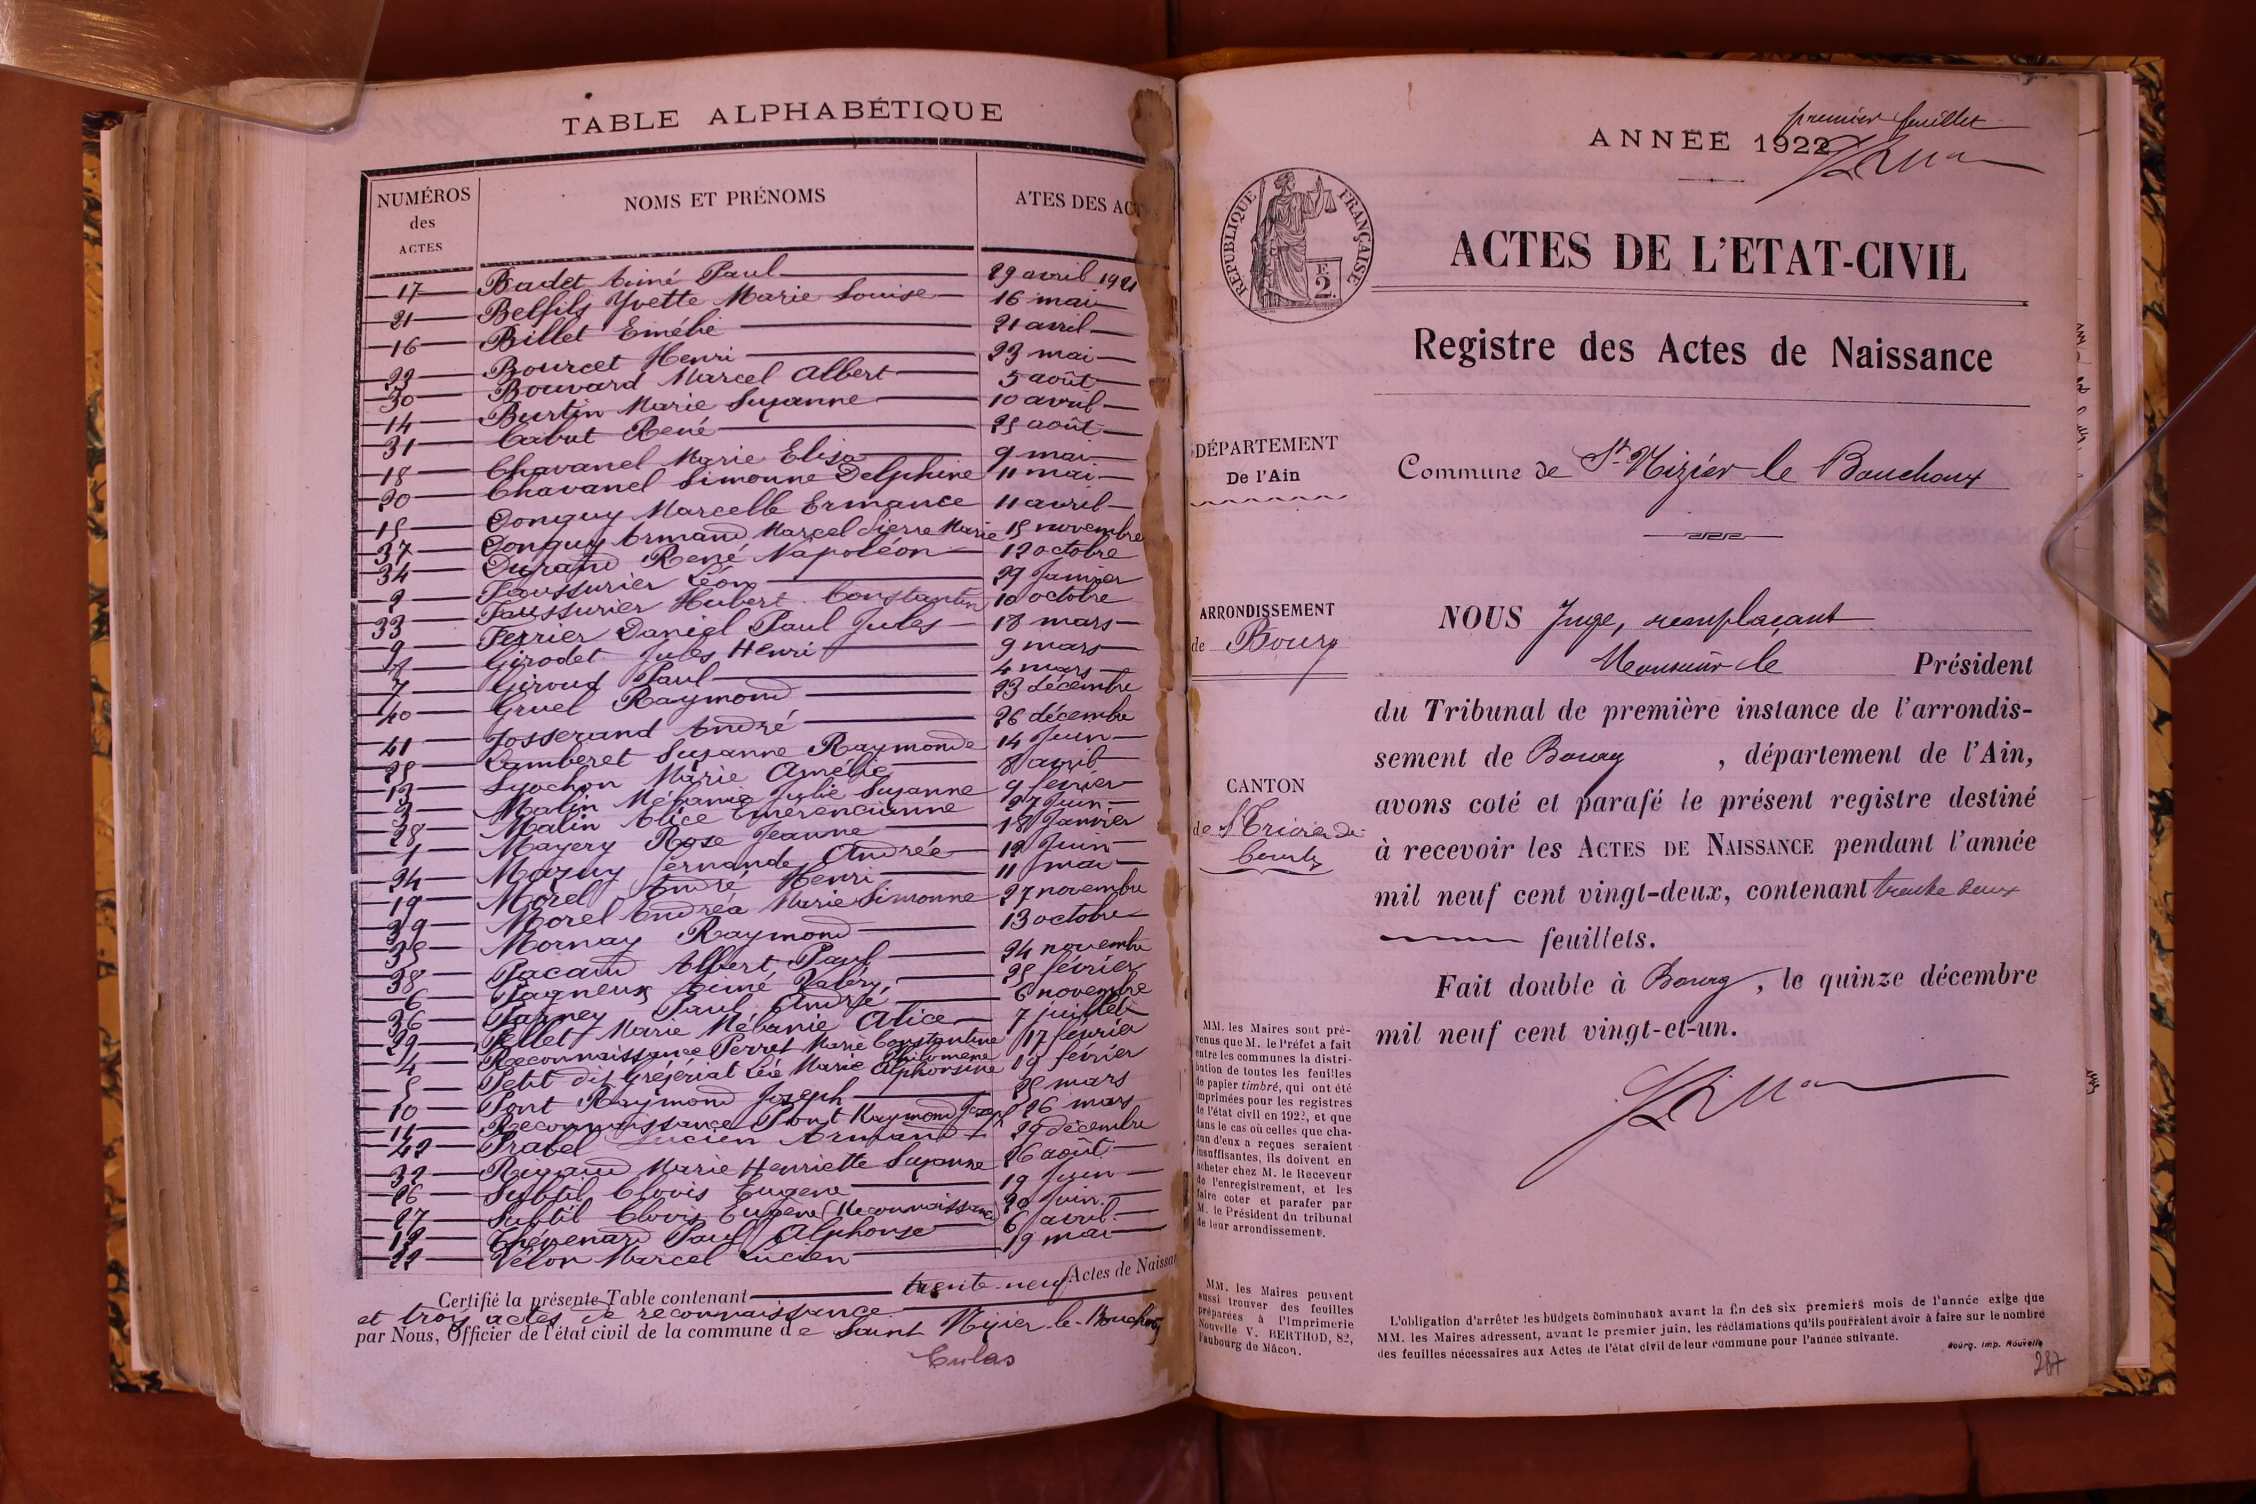 TABLE ALPHABÉTIQUE
NUMÉROS
des
ACTES
NOMS ET PRÉNOMS
ATES DES AC
17 Badet Aimé Paul 29 avril 1921
21 Belfils Yvette Marie Louise 16 mai
16 Billet Emélie 21 avril
23 Bourcet Henri 23 mai
30 Bouvard Marcel Albert 5 août
14 Burtin Marie Suzanne 10 avril
31 Cabut René 25 août
18 Chavanel Marie Elisa 9 mai
20 Chavanel Simonne Delphine 11 mai
15 Donguy Marcelle Ermance 11 avril
37 Donguy Armand Marcel Pierre Marie 15 novembre
34 Durand René Napoléon 12 octobre
2 Faussurier Léon 29 Janvier
33 Faussurier Hubert Constantin 10 octobre
9 Ferrier Daniel Paul Jules 18 mars
Girodet Jules Henri 9 mars
7 Giroud Paul 4 mars
40 Gruel Raymond 23 décembre
41 Josserand André 26 décembre
25 Lamberet Suzanne Raymonde 14 Juin
13 Lyochon Marie Amélie 8 avril
3 Malin Mélanie Julie Suzanne 9 février
28 Malin Alice Emerencienne 27 Juin
1 Mayery Rose Jeanne 18 Janvier
24 Mazuy Fernande Andrée 12 Juin
19 Morel André Henri 11 mai
39 Morel Andréa Marie Simonne 27 novembre
35 Mornay Raymond 13 octobre
38 Pacaud Albert Paul 24 novembre
6 Pagneux Aimé Valéry 25 février
36 Panney Paul André 6 novembre
29 Pellet Marie Mélanie Alice 7 juillet
4 Reconnaissance Perret Marie Constantine Philomène 17 février
5 Petit dit Gréjériat Léa Marie Alphonsine 19 février
10 Pont Raymond Joseph 25 mars
11 Reconnaissance Pont Raymond Joseph 26 mars
42 Prabel Lucien Armand 29 décembre
32 Rigaud Marie Henriette Suzanne 26 août
26 Subtil Clovis Eugène 19 Juin
27 Subtil Clovis Eugène (Reconnaissance) 20 Juin
12 Thevenard Paul Alphonse 6 avril
22 Velon Marcel Lucien 19 mai
Certifié la présente Table contenant trente-neuf Actes de Naissan
et trois actes de reconnaissance
par Nous, Officier de l'état civil de la commune de Saint Nizier-le-Bouchoux
ANNÉE 1922
premier feuillet
RÉPUBLIQUE FRANÇAISE
2
ACTES DE L'ETAT-CIVIL
Registre des Actes de Naissance
DÉPARTEMENT
De l'Ain
Commune de St-Nizier le Bouchoux
ARRONDISSEMENT
de Bourg
CANTON
de St Trivier de
Courtes
NOUS Juge, remplaçant
Monsieur le Président
du Tribunal de première instance de l'arrondis-
sement de Bourg, département de l'Ain,
avons coté et parafé le présent registre destiné
à recevoir les ACTES DE NAISSANCE pendant l'année
mil neuf cent vingt-deux, contenant trente deux
feuillets.
Fait double à Bourg, le quinze décembre
mil neuf cent vingt-et-un.
MM. les Maires sont pré-
venus que M. le Préfet a fait
entre les communes la distri-
bution de toutes les feuilles
de papier timbré, qui ont été
imprimées pour les registres
de l'état civil en 1922, et que
dans le cas où celles que cha-
cun d'eux a reçues seraient
insuffisantes, ils doivent en
acheter chez M. le Receveur
de l'enregistrement, et les
faire coter et parafer par
M. le Président du tribunal
de leur arrondissement.
MM. les Maires peuvent
aussi trouver des feuilles
préparées à l'Imprimerie
Nouvelle V. BERTHOD, 82,
Faubourg de Mâcon.
L'obligation d'arrêter les budgets communaux avant la fin des six premiers mois de l'année exige que
MM. les Maires adressent, avant le premier juin, les réclamations qu'ils pourraient avoir à faire sur le nombre
des feuilles nécessaires aux Actes de l'état civil de leur commune pour l'année suivante.
Bourg. Imp. Nouvelle
287